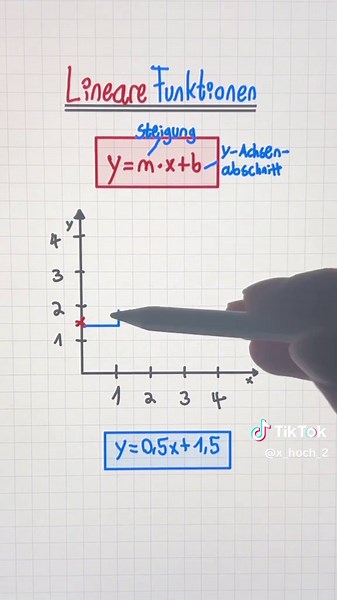 Lineare Funktionen
Steigung
y=m·x+b
y-Achsen-
abschnitt
y
4
3
2
1
1 2 3 4
x
y=0,5x+1,5
TikTok
@x_hoch_2